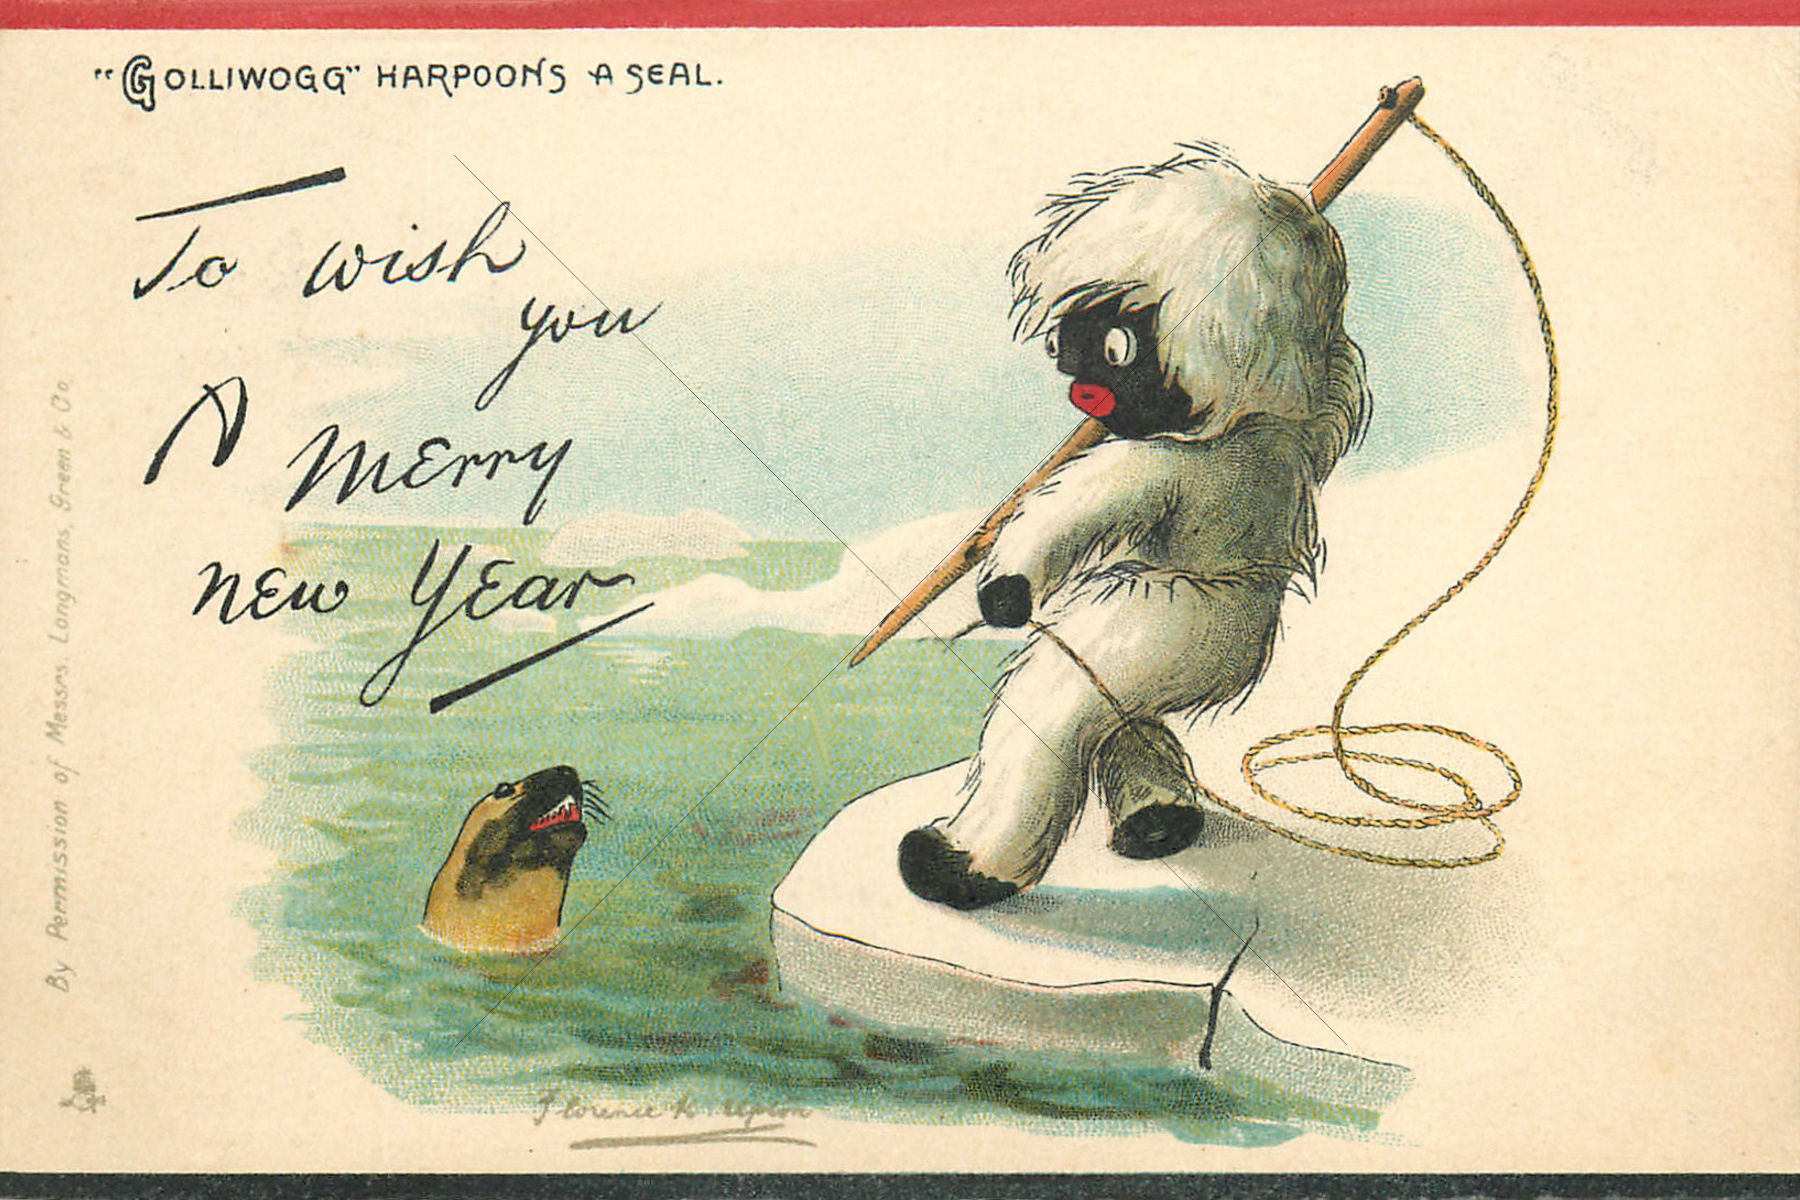 "GOLLIWOGG" HARPOONS A SEAL.
To wish
you
A merry
new Year
By Permission of Messrs. Longmans, Green & Co.
Florence K. Upton